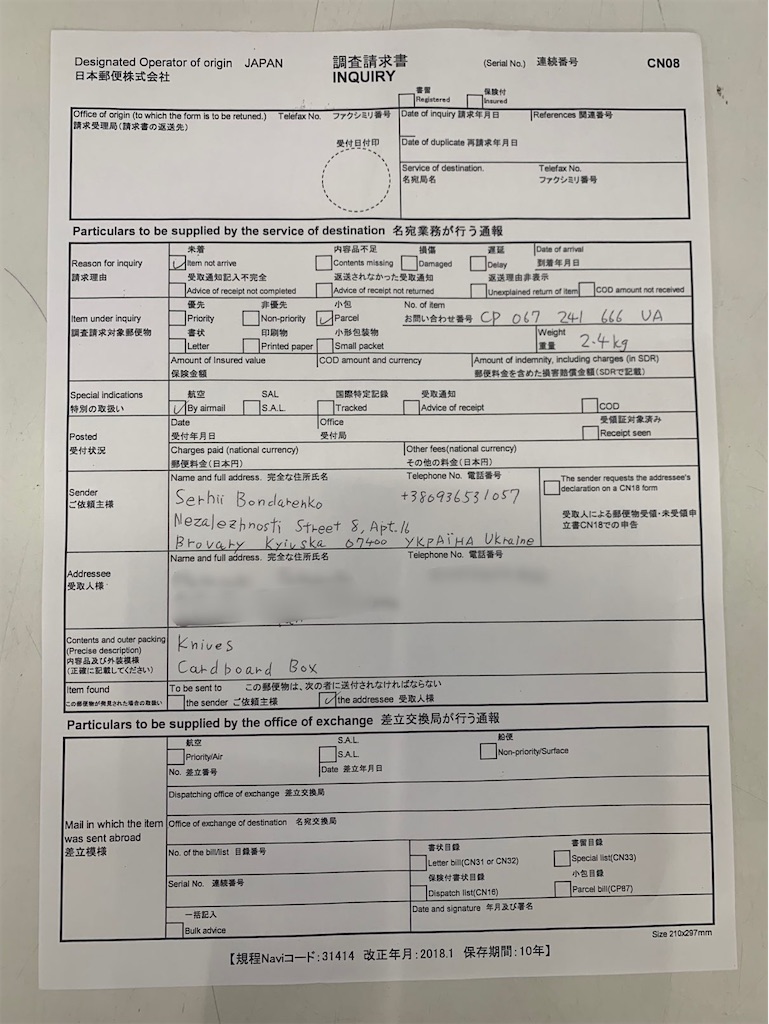 Designated Operator of origin JAPAN
日本郵便株式会社
調査請求書
INQUIRY
(Serial No.) 連続番号
CN08
書留
Registered
保険付
Insured
Office of origin (to which the form is to be retuned.) Telefax No. ファクシミリ番号
請求受理局(請求書の返送先)
受付日付印
Date of inquiry 請求年月日
References 関連番号
Date of duplicate 再請求年月日
Service of destination.
名宛局名
Telefax No.
ファクシミリ番号
Particulars to be supplied by the service of destination 名宛業務が行う通報
Reason for inquiry
請求理由
未着
Item not arrive
内容品不足
Contents missing
損傷
Damaged
遅延
Delay
Date of arrival
到着年月日
受取通知記入不完全
Advice of receipt not completed
返送されなかった受取通知
Advice of receipt not returned
返送理由非表示
Unexplained return of item
COD amount not received
Item under inquiry
調査請求対象郵便物
優先
Priority
非優先
Non-priority
小包
Parcel
No. of item
お問い合わせ番号 CP 067 241 666 UA
書状
Letter
印刷物
Printed paper
小形包装物
Small packet
Weight
重量 2.4kg
Amount of Insured value
保険金額
COD amount and currency
Amount of indemnity, including charges (in SDR)
郵便料金を含めた損害賠償金額(SDRで記載)
Special indications
特別の取扱い
航空
By airmail
SAL
S.A.L.
国際特定記録
Tracked
受取通知
Advice of receipt
COD
Posted
受付状況
Date
受付年月日
Office
受付局
受領証対象済み
Receipt seen
Charges paid (national currency)
郵便料金(日本円)
Other fees(national currency)
その他の料金(日本円)
Sender
ご依頼主様
Name and full address. 完全な住所氏名
Telephone No. 電話番号
Serhii Bondarenko +380936531057
Nezalezhnosti Street 8, Apt.16
Brovary Kyivska 07400 УКРАЇНА Ukraine
The sender requests the addressee's
declaration on a CN18 form
受取人による郵便物受領・未受領申
立書CN18での申告
Addressee
受取人様
Name and full address. 完全な住所氏名
Telephone No. 電話番号
Contents and outer packing
(Precise description)
内容品及び外装模様
(正確に記載してください)
Knives
Cardboard Box
Item found
この郵便物が発見された場合の取扱い
To be sent to この郵便物は、次の者に送付されなければならない
the sender ご依頼主様
the addressee 受取人様
Particulars to be supplied by the office of exchange 差立交換局が行う通報
Mail in which the item
was sent abroad
差立模様
航空
Priority/Air
S.A.L.
S.A.L.
船便
Non-priority/Surface
No. 差立番号
Date 差立年月日
Dispatching office of exchange 差立交換局
Office of exchange of destination 名宛交換局
No. of the bill/list 目録番号
書状目録
Letter bill(CN31 or CN32)
書留目録
Special list(CN33)
Serial No. 連続番号
保険付書状目録
Dispatch list(CN16)
小包目録
Parcel bill(CP87)
一括記入
Bulk advice
Date and signature 年月及び署名
Size 210x297mm
【規程Naviコード:31414 改正年月:2018.1 保存期間:10年】